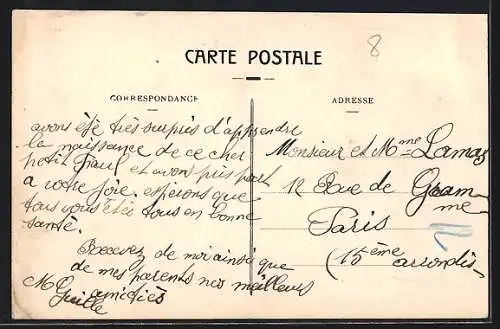 8
CARTE POSTALE
CORRESPONDANCE
ADRESSE
avons été très surpris d'apprendre
la naissance de ce cher
petit Paul et avons pris part
a votre joie. espérons que
tous vous êtes tous en bonne
santé.
Recevez de moi ainsi que
de mes parents nos meilleurs
amitiés
M Guille
Monsieur et Mme Lamaz
12 Rue de Gram
me
Paris
(15ème arrondis